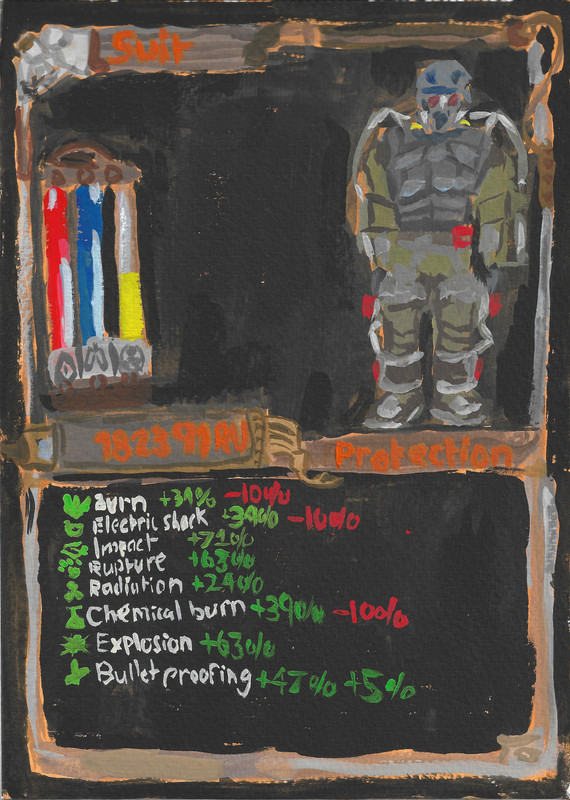 Suit
182391RU
Protection
Burn +34% -10%
Electric shock +34% -10%
Impact +71%
Rupture +63%
Radiation +24%
Chemical burn +39% -10%
Explosion +63%
Bullet proofing +47% +5%